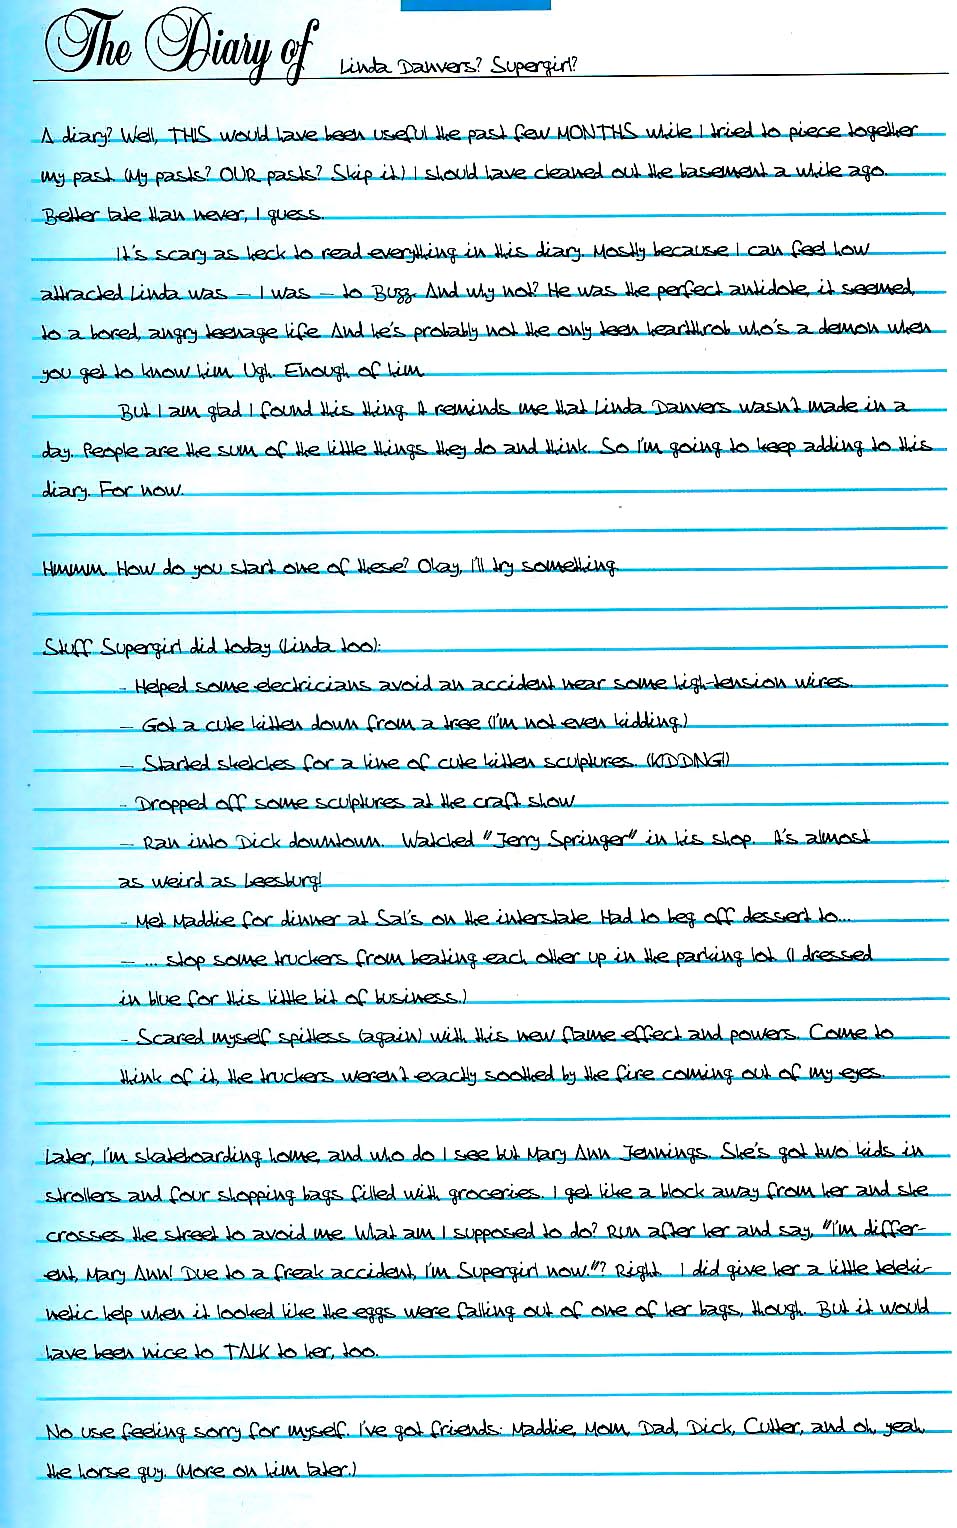 The Diary of Linda Danvers? Supergirl?
A diary? Well, THIS would have been useful the past few MONTHS while I tried to piece together
my past. (My pasts? OUR pasts? Skip it.) I should have cleaned out the basement a while ago.
Better late than never, I guess.
It's scary as heck to read everything in this diary. Mostly because I can feel how
attracted Linda was — I was — to Buzz. And why not? He was the perfect antidote, it seemed,
to a bored, angry teenage life. And he's probably not the only teen hearthrob who's a demon when
you get to know him. Ugh. Enough of him.
But I am glad I found this thing. It reminds me that Linda Danvers wasn't made in a
day. People are the sum of the little things they do and think. So I'm going to keep adding to this
diary. For now.
Hmmm. How do you start one of these? Okay, I'll try something.
Stuff Supergirl did today (Linda too):
- Helped some electricians avoid an accident near some high-tension wires.
- Got a cute kitten down from a tree (I'm not even kidding.)
- Started sketches for a line of cute kitten sculptures. (KIDDNG!)
- Dropped off some sculptures at the craft show.
- Ran into Dick downtown. Watched "Jerry Springer" in his shop. It's almost
as weird as Leesburg!
- Met Maddie for dinner at Sal's on the interstate. Had to beg off dessert to...
- ... stop some truckers from beating each other up in the parking lot. (I dressed
in blue for this little bit of business.)
- Scared myself spitless (again) with this new flame effect and powers. Come to
think of it, the truckers weren't exactly soothed by the fire coming out of my eyes.
Later, I'm skateboarding home, and who do I see but Mary Ann Jennings. She's got two kids in
strollers and four shopping bags filled with groceries. I get like a block away from her and she
crosses the street to avoid me. What am I supposed to do? Run after her and say, "I'm differ-
ent, Mary Ann! Due to a freak accident, I'm Supergirl now."? Right. I did give her a little teleki-
netic help when it looked like the eggs were falling out of one of her bags, though. But it would
have been nice to TALK to her, too.
No use feeling sorry for myself. I've got friends: Maddie, Mom, Dad, Dick, Cutter, and oh, yeah,
the horse guy. (More on him later.)